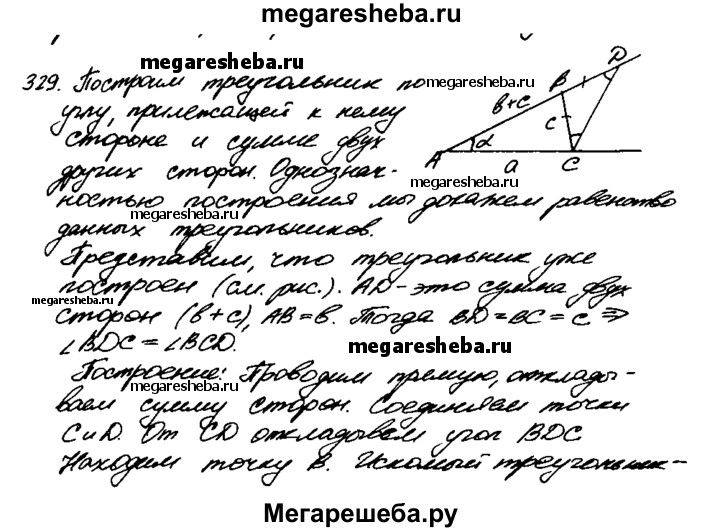 megaresheba.ru
megaresheba.ru
329. Построим треугольник по
megaresheba.ru
углу, прилежащей к нему
стороне и сумме двух
других сторон. Однознач-
megaresheba.ru
ностью построения мы докажем равенство
megaresheba.ru
данных треугольников.
A B C D α a c b+c
Представим, что треугольник уже
построен (см. рис.). AD - это сумма двух
megaresheba.ru
сторон (b+c), AB = b. Тогда BD = BC = c ⇒
∠BDC = ∠BCD.
megaresheba.ru
Построение: Проводим прямую, отклады-
megaresheba.ru
ваем сумму сторон. Соединяем точки
C и D. От CD откладовем угол BDC
Находим точку B. Искомый треугольник -
Мегарешеба.ру